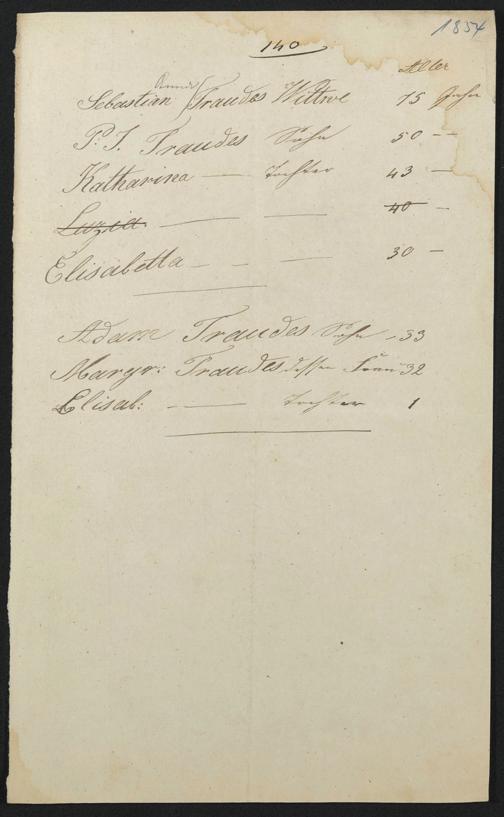 1854
140
Alter
Sebastian Traudes Wittwe 75 Jahr
P. J. Traudes Sohn 50 —
Katharina — Tochter 43 —
Luzia — — 40 —
Elisabetta — — 30 —
Adam Traudes Sohn 33
Margr: Traudes dessen Frau 32
Elisab: — Tochter 1